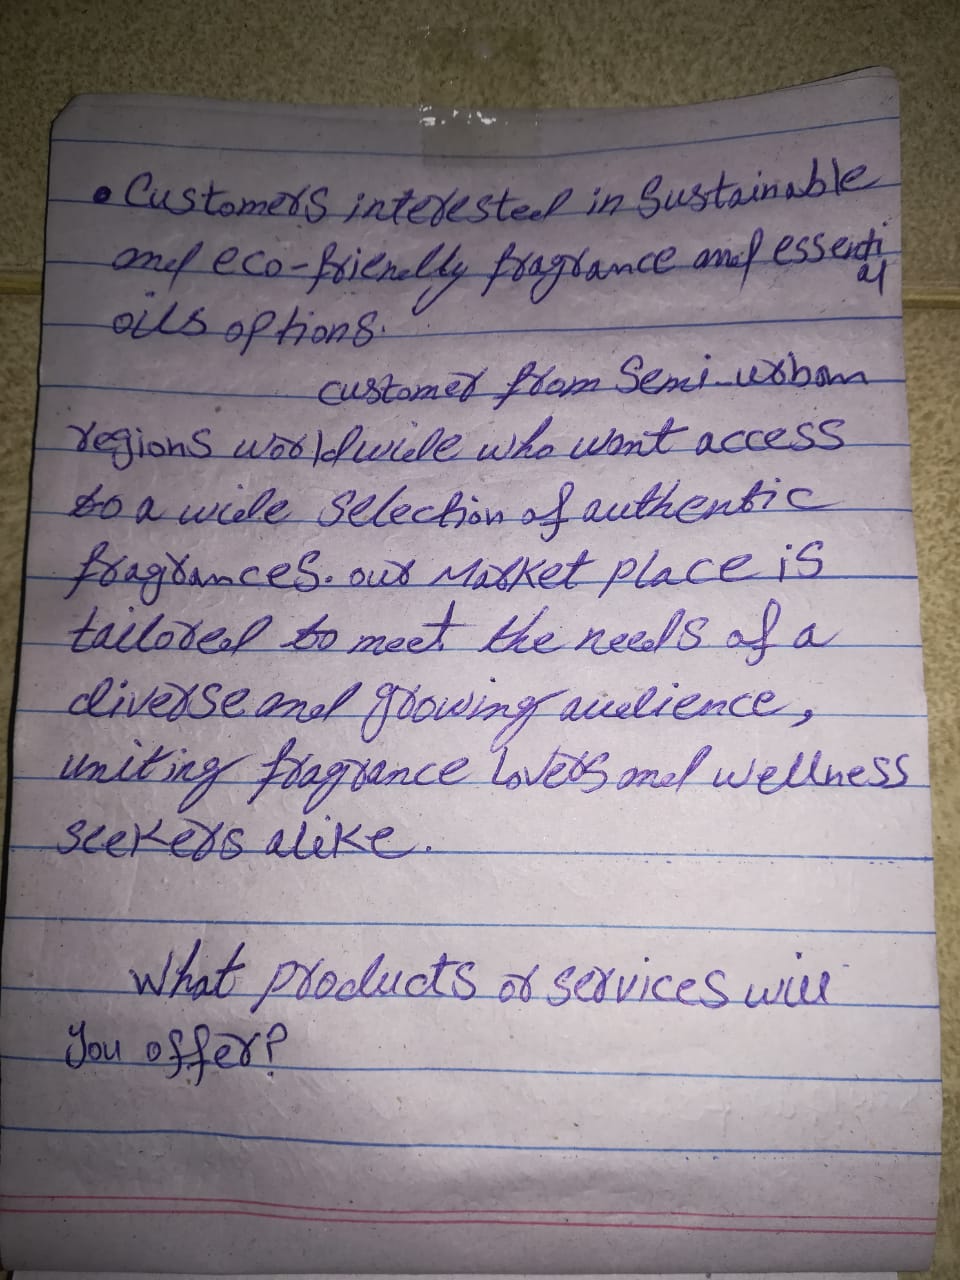 • Customers interested in Sustainable
and eco-friendly fragrance and essenti
al
oils options.
customer from Semi-urban
regions worldwide who want access
to a wide Selection of authentic
fragrances. our Market place is
tailored to meet the needs of a
diverse and growing audience,
uniting fragrance lovers and wellness
seekers alike.
What products or services will
you offer?